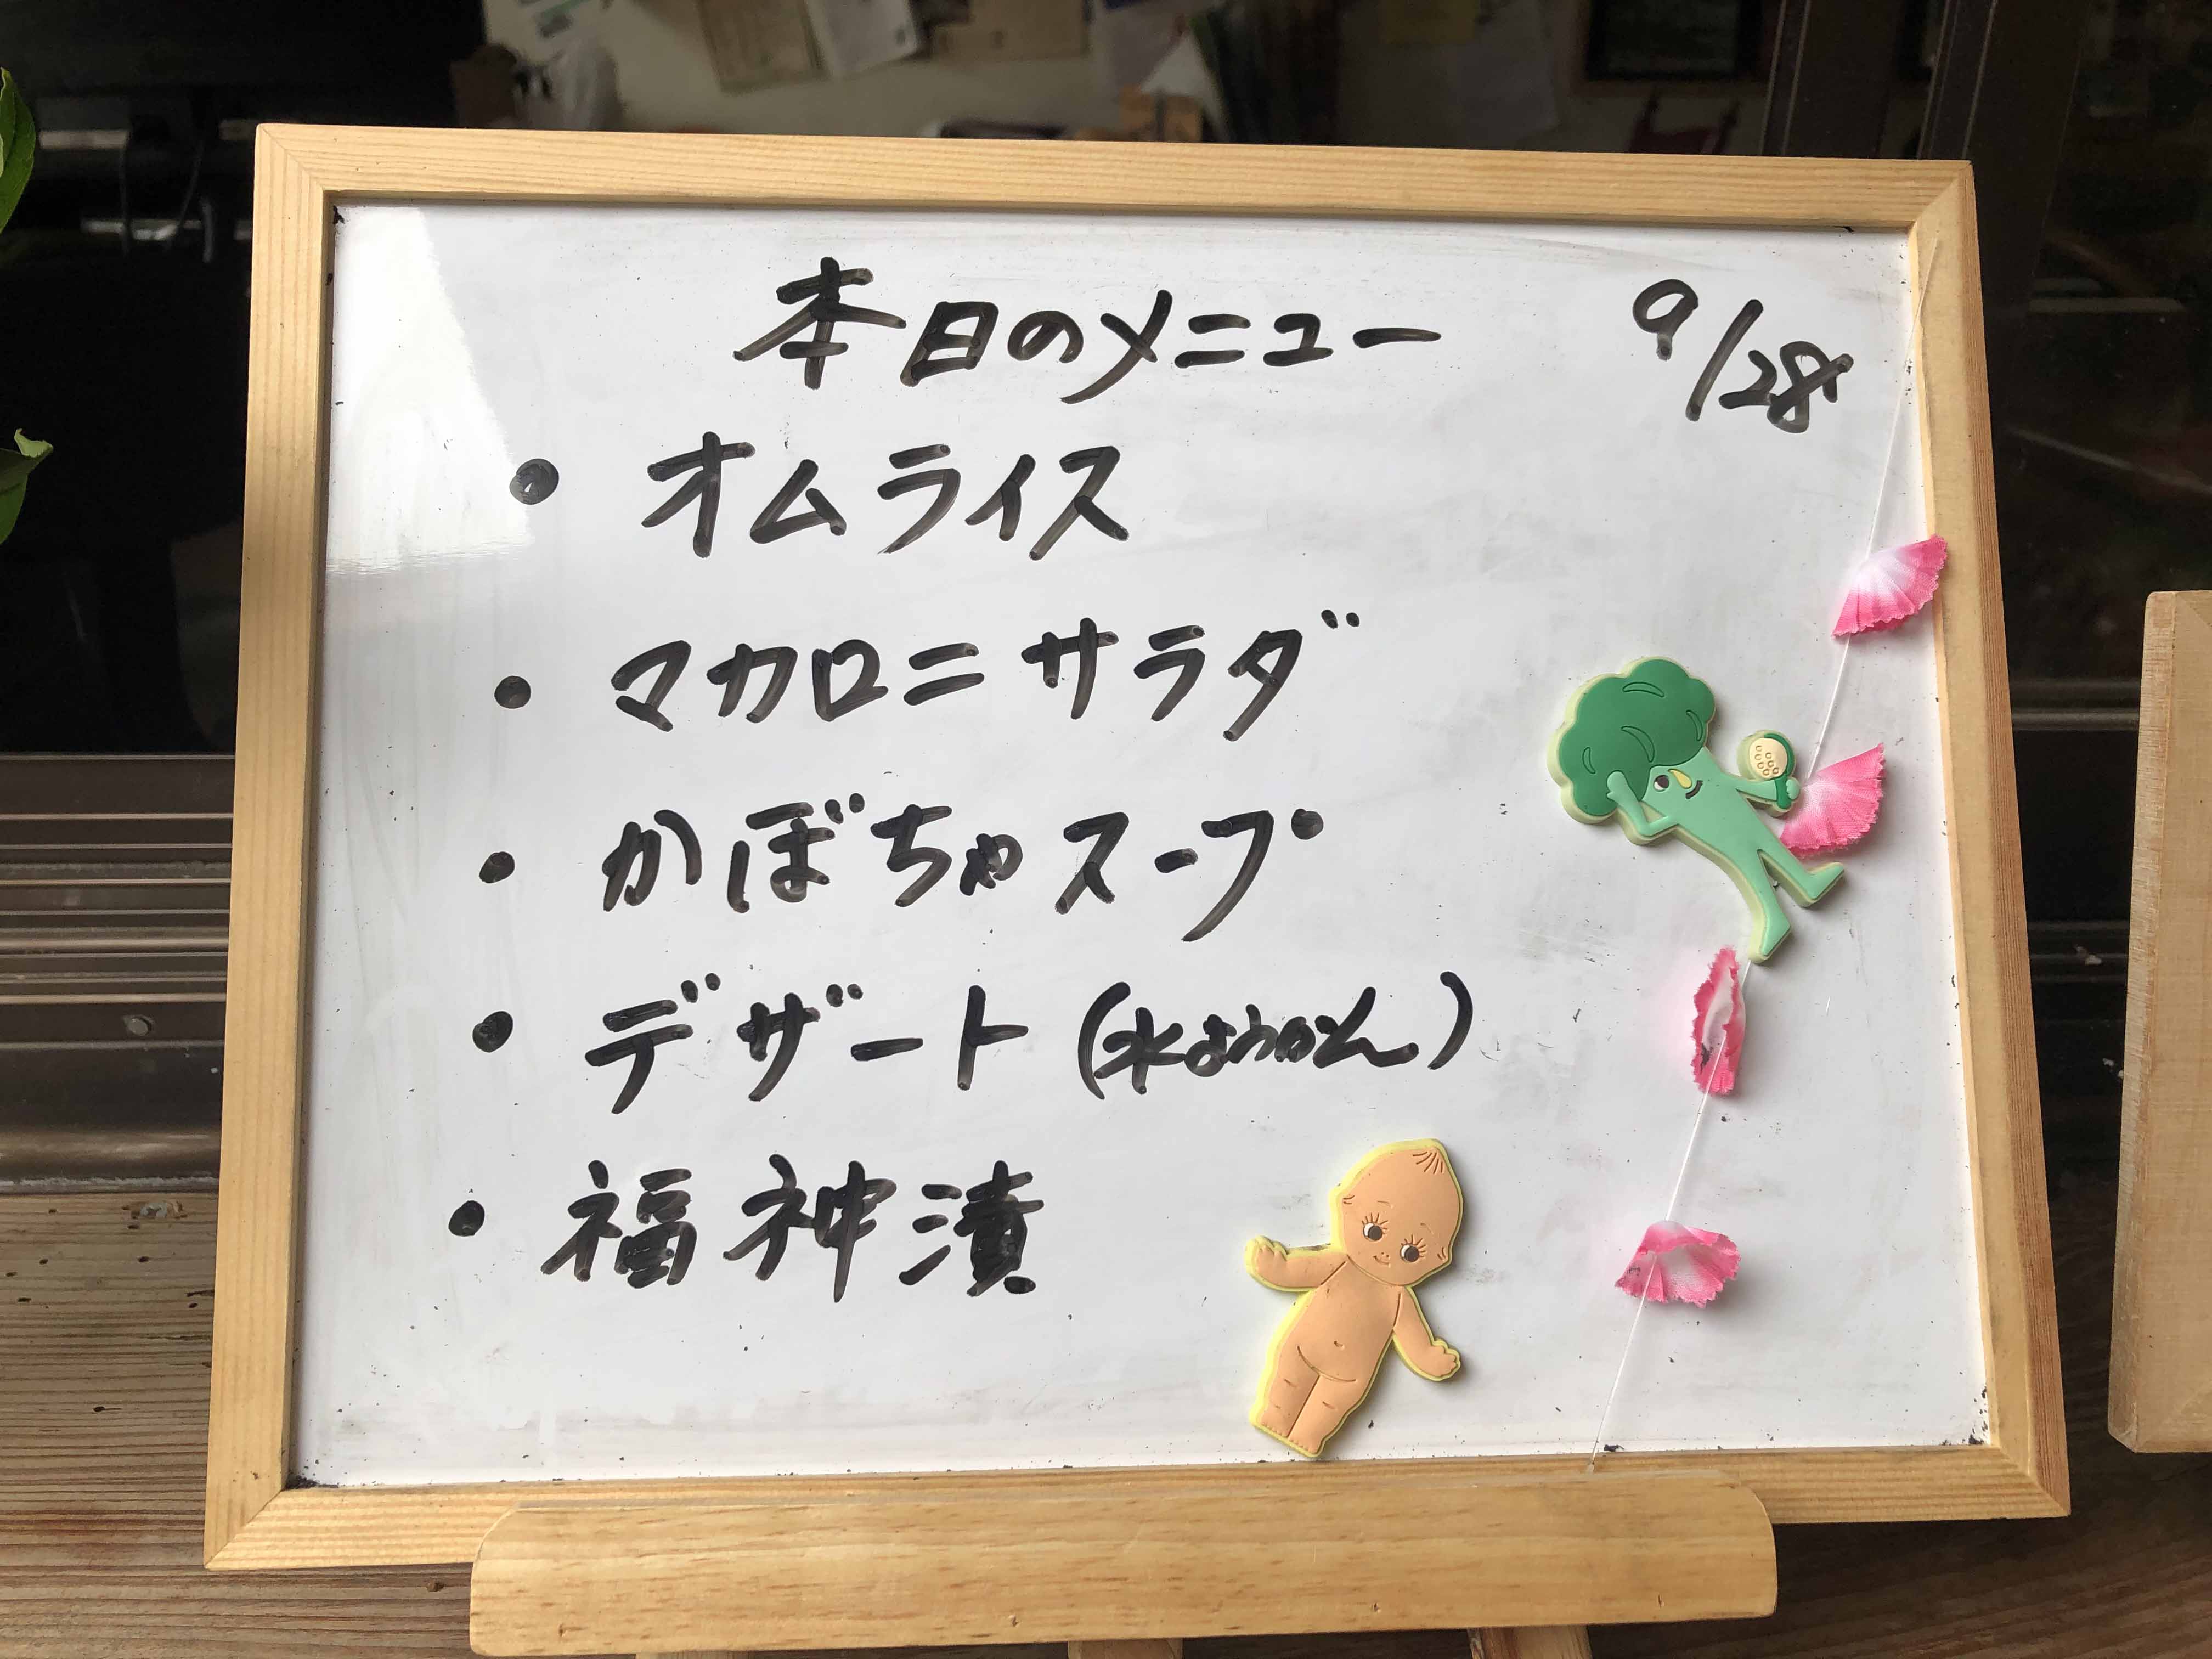 本日のメニュー 9/28
・オムライス
・マカロニサラダ
・かぼちゃスープ
・デザート(水ようかん)
・福神漬